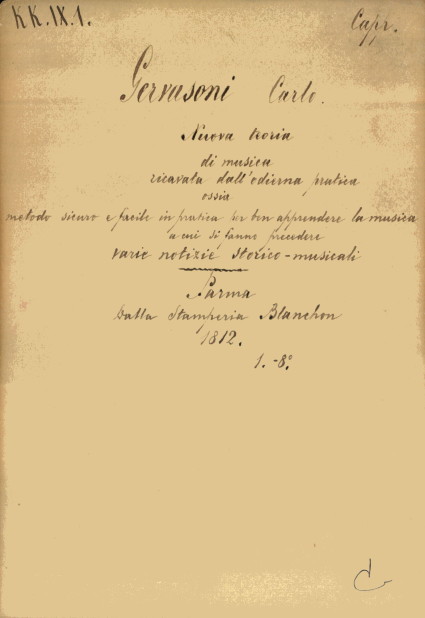 KK.IX.1.
Capr.
Gervasoni Carlo.
Nuova teoria
di musica
ricavata dall'odierna pratica
ossia
metodo sicuro e facile in pratica per ben apprendere la musica
a cui si fanno precedere
varie notizie storico-musicali
Parma
Dalla Stamperia Blanchon
1812.
1.-8°.